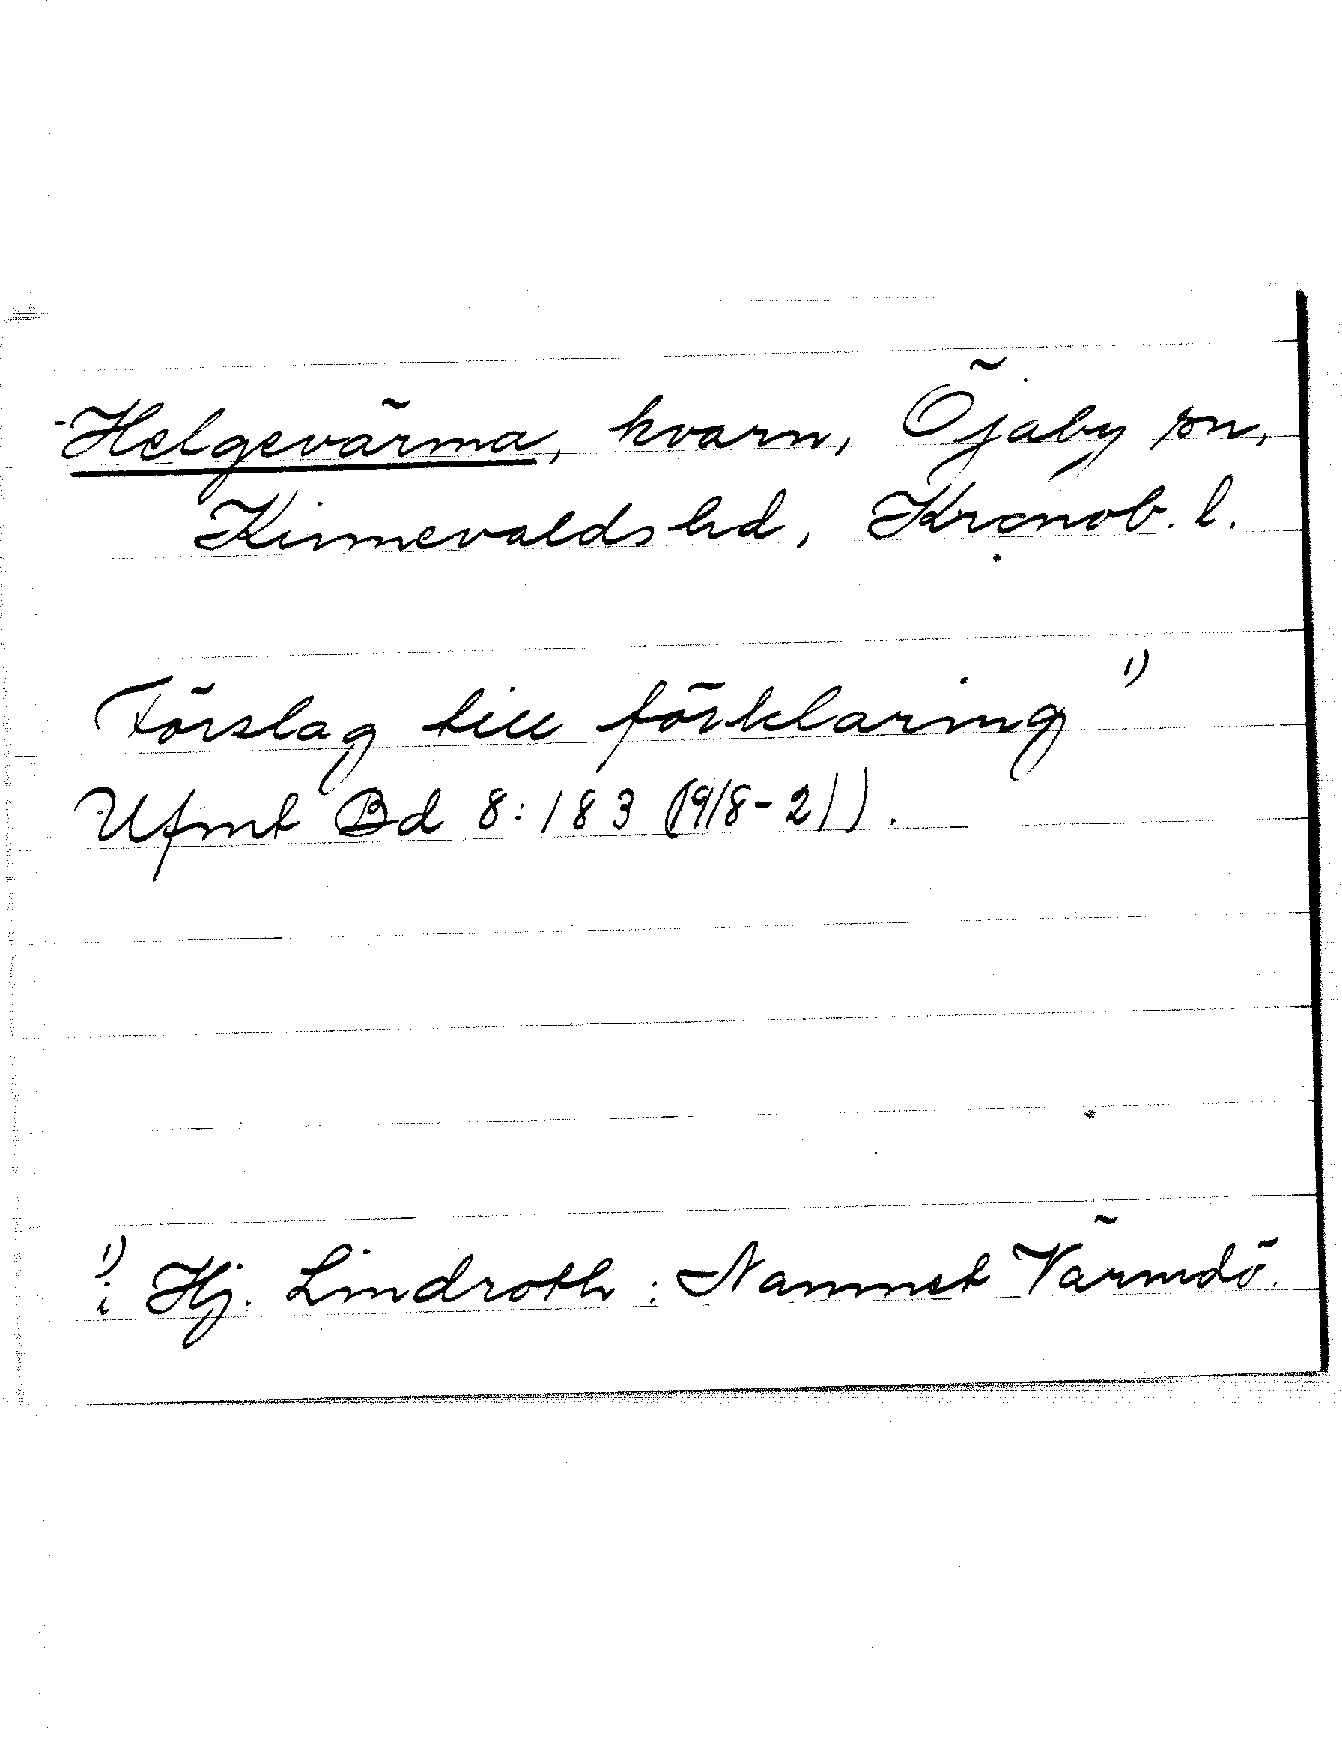 Helgevärma, kvarn, Öjaby sn,
Kinnevalds hd, Kronob. l.
Förslag till förklaring 1)
Ufmt Bd 8:183 (1918-21).
1) i Hj. Lindroth: Namnet Värmdö.